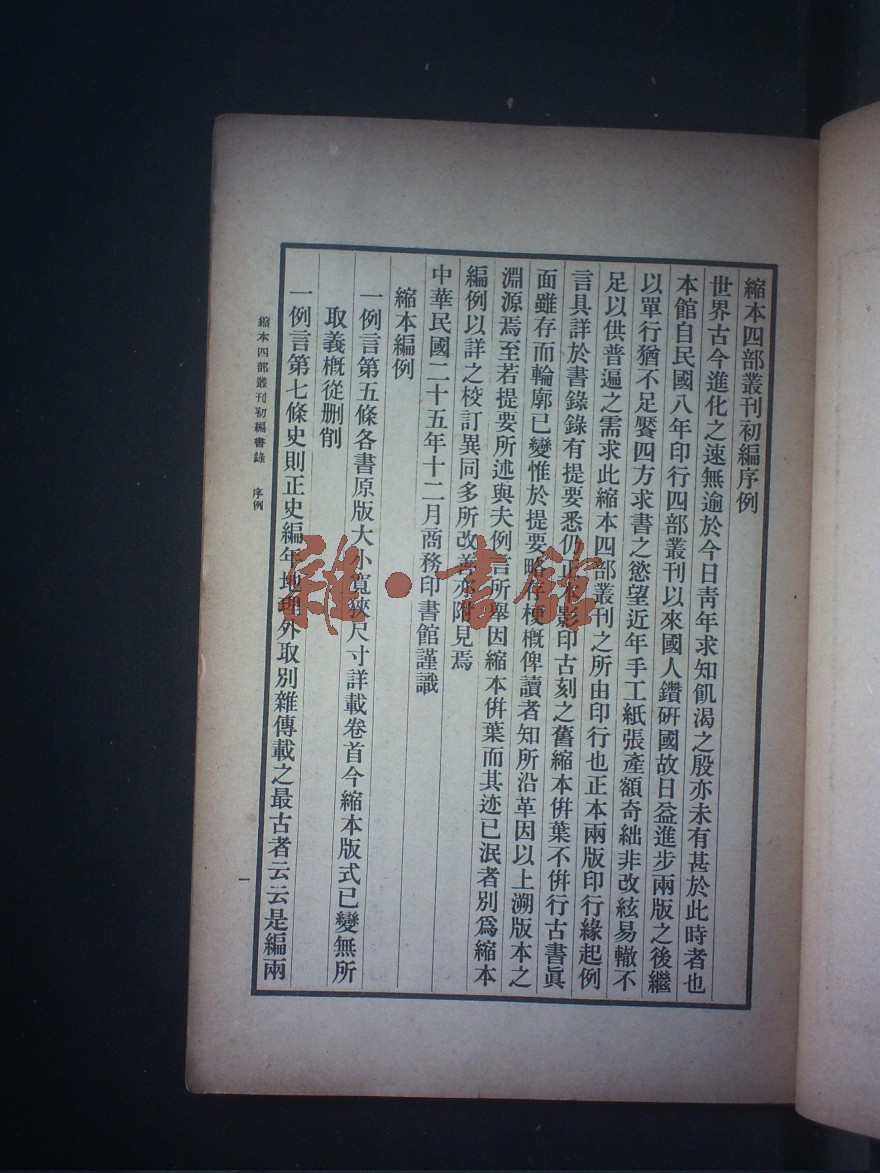 縮本四部叢刊初編序例
世界古今進化之速無逾於今日靑年求知飢渴之殷亦未有甚於此時者也
本館自民國八年印行四部叢刊以來國人鑽研國故日益進步兩版之後繼
以單行猶不足饜四方求書之慾望近年手工紙張產額奇絀非改絃易轍不
足以供普遍之需求此縮本四部叢刊之所由印行也正本兩版印行緣起例
言具詳於書錄錄有提要悉仍正本影印古刻之舊縮本倂葉不倂行古書眞
面雖存而輪廓已變惟於提要略存梗概俾讀者知所沿革因以上溯版本之
淵源焉至若提要所述與夫例言所舉因縮本倂葉而其迹已泯者別爲縮本
編例以詳之校訂異同多所改善亦附見焉
中華民國二十五年十二月商務印書館謹識
縮本編例
一例言第五條各書原版大小寬狹尺寸詳載卷首今縮本版式已變無所
取義概從删削
一例言第七條史則正史編年地理外取別雜傳載之最古者云云是編兩
縮本四部叢刊初編書錄 序例
一
雜·書館